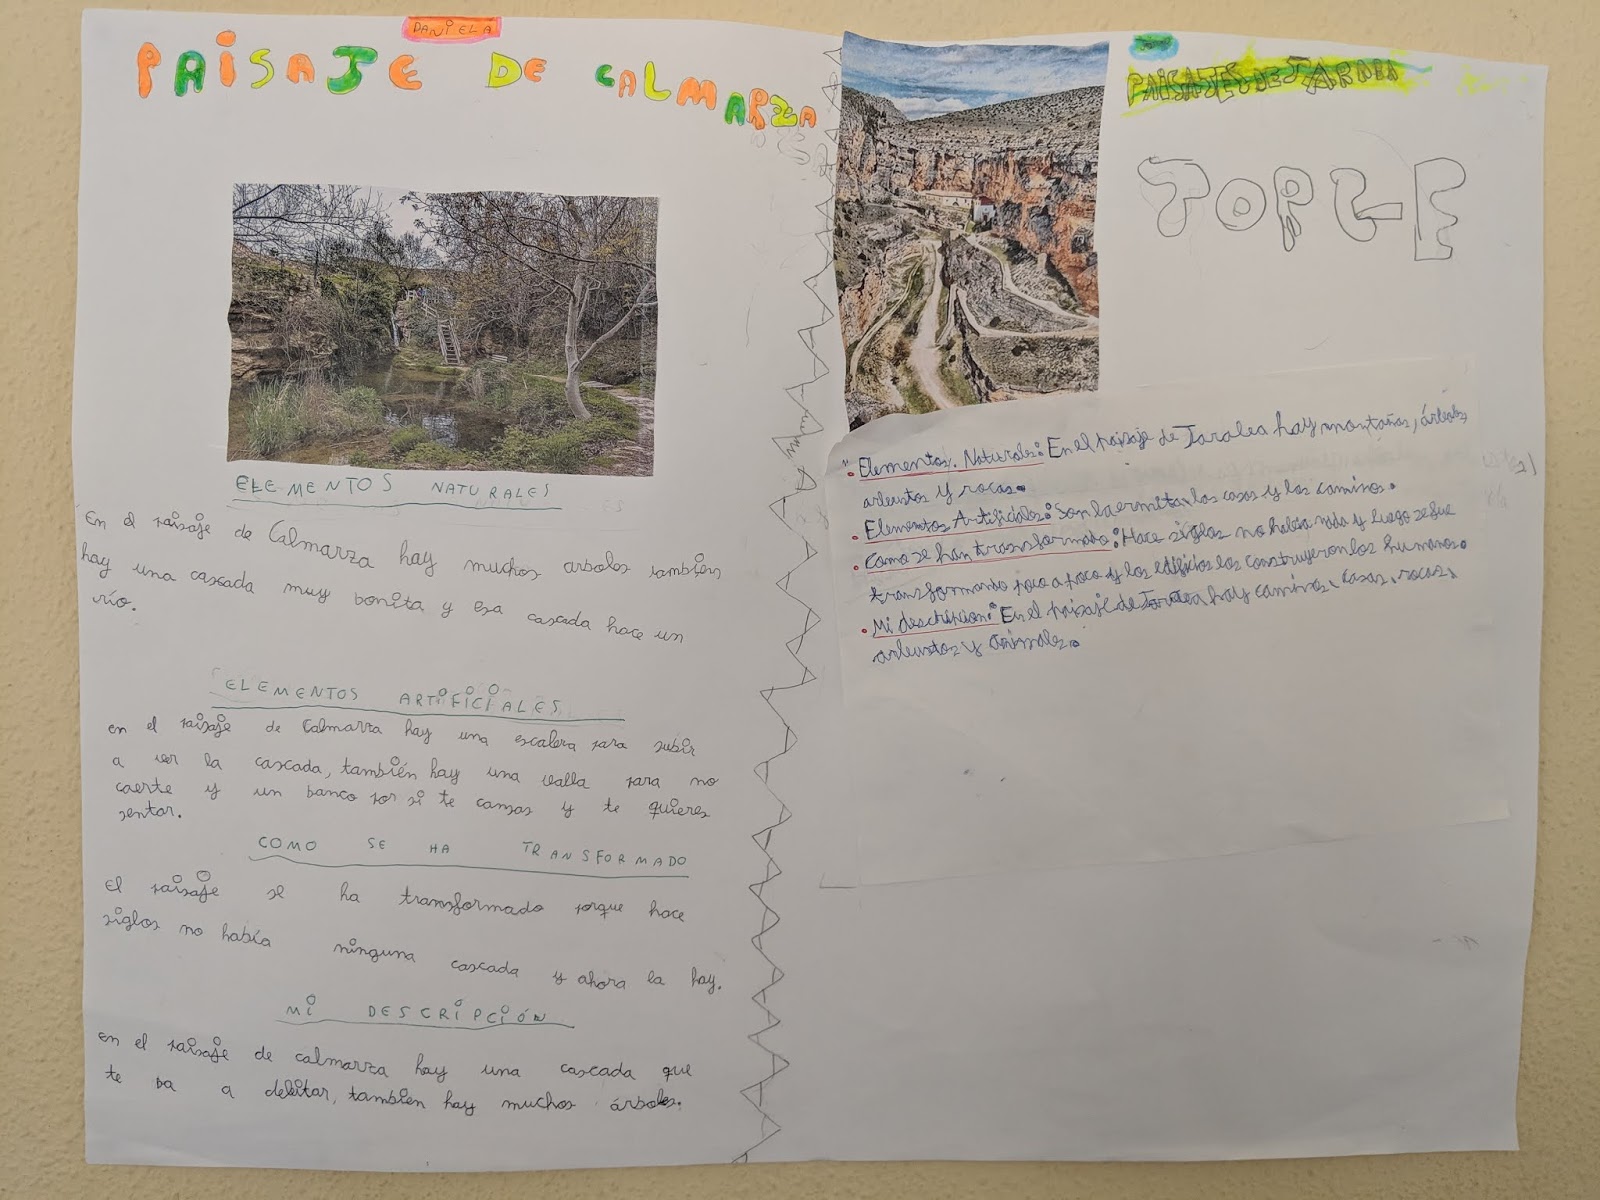 DANIELA
PAISAJE DE CALMARZA
ELEMENTOS NATURALES
En el paisaje de Calmarza hay muchos arboles tambien
hay una cascada muy bonita y esa cascada hace un
río.
ELEMENTOS ARTIFICIALES
en el paisaje de Calmarza hay una escalera para subir
a ver la cascada, también hay una valla para no
caerte y un banco por si te cansas y te quieres
sentar.
COMO SE HA TRANSFORMADO
El paisaje se ha transformado porque hace
siglos no había ninguna cascada y ahora la hay.
MI DESCRIPCIÓN
en el paisaje de calmarza hay una cascada que
te va a deleitar, tambien hay muchos árboles.
PAISAJES DE JARABA
TOPLE
• Elementos. Naturales: En el paisaje de Jaraba hay montañas, árboles,
arbustos y rocas.
• Elementos Artificiales: Son la ermita, las casas y los caminos.
• Como se han transformado: Hace siglos no había nada y luego se fue
transformando poco a poco y los edificios los construyeron los humanos.
• Mi descripcion: En el paisaje de Jaraba hay caminos, casas, rocas,
arbustos y animales.